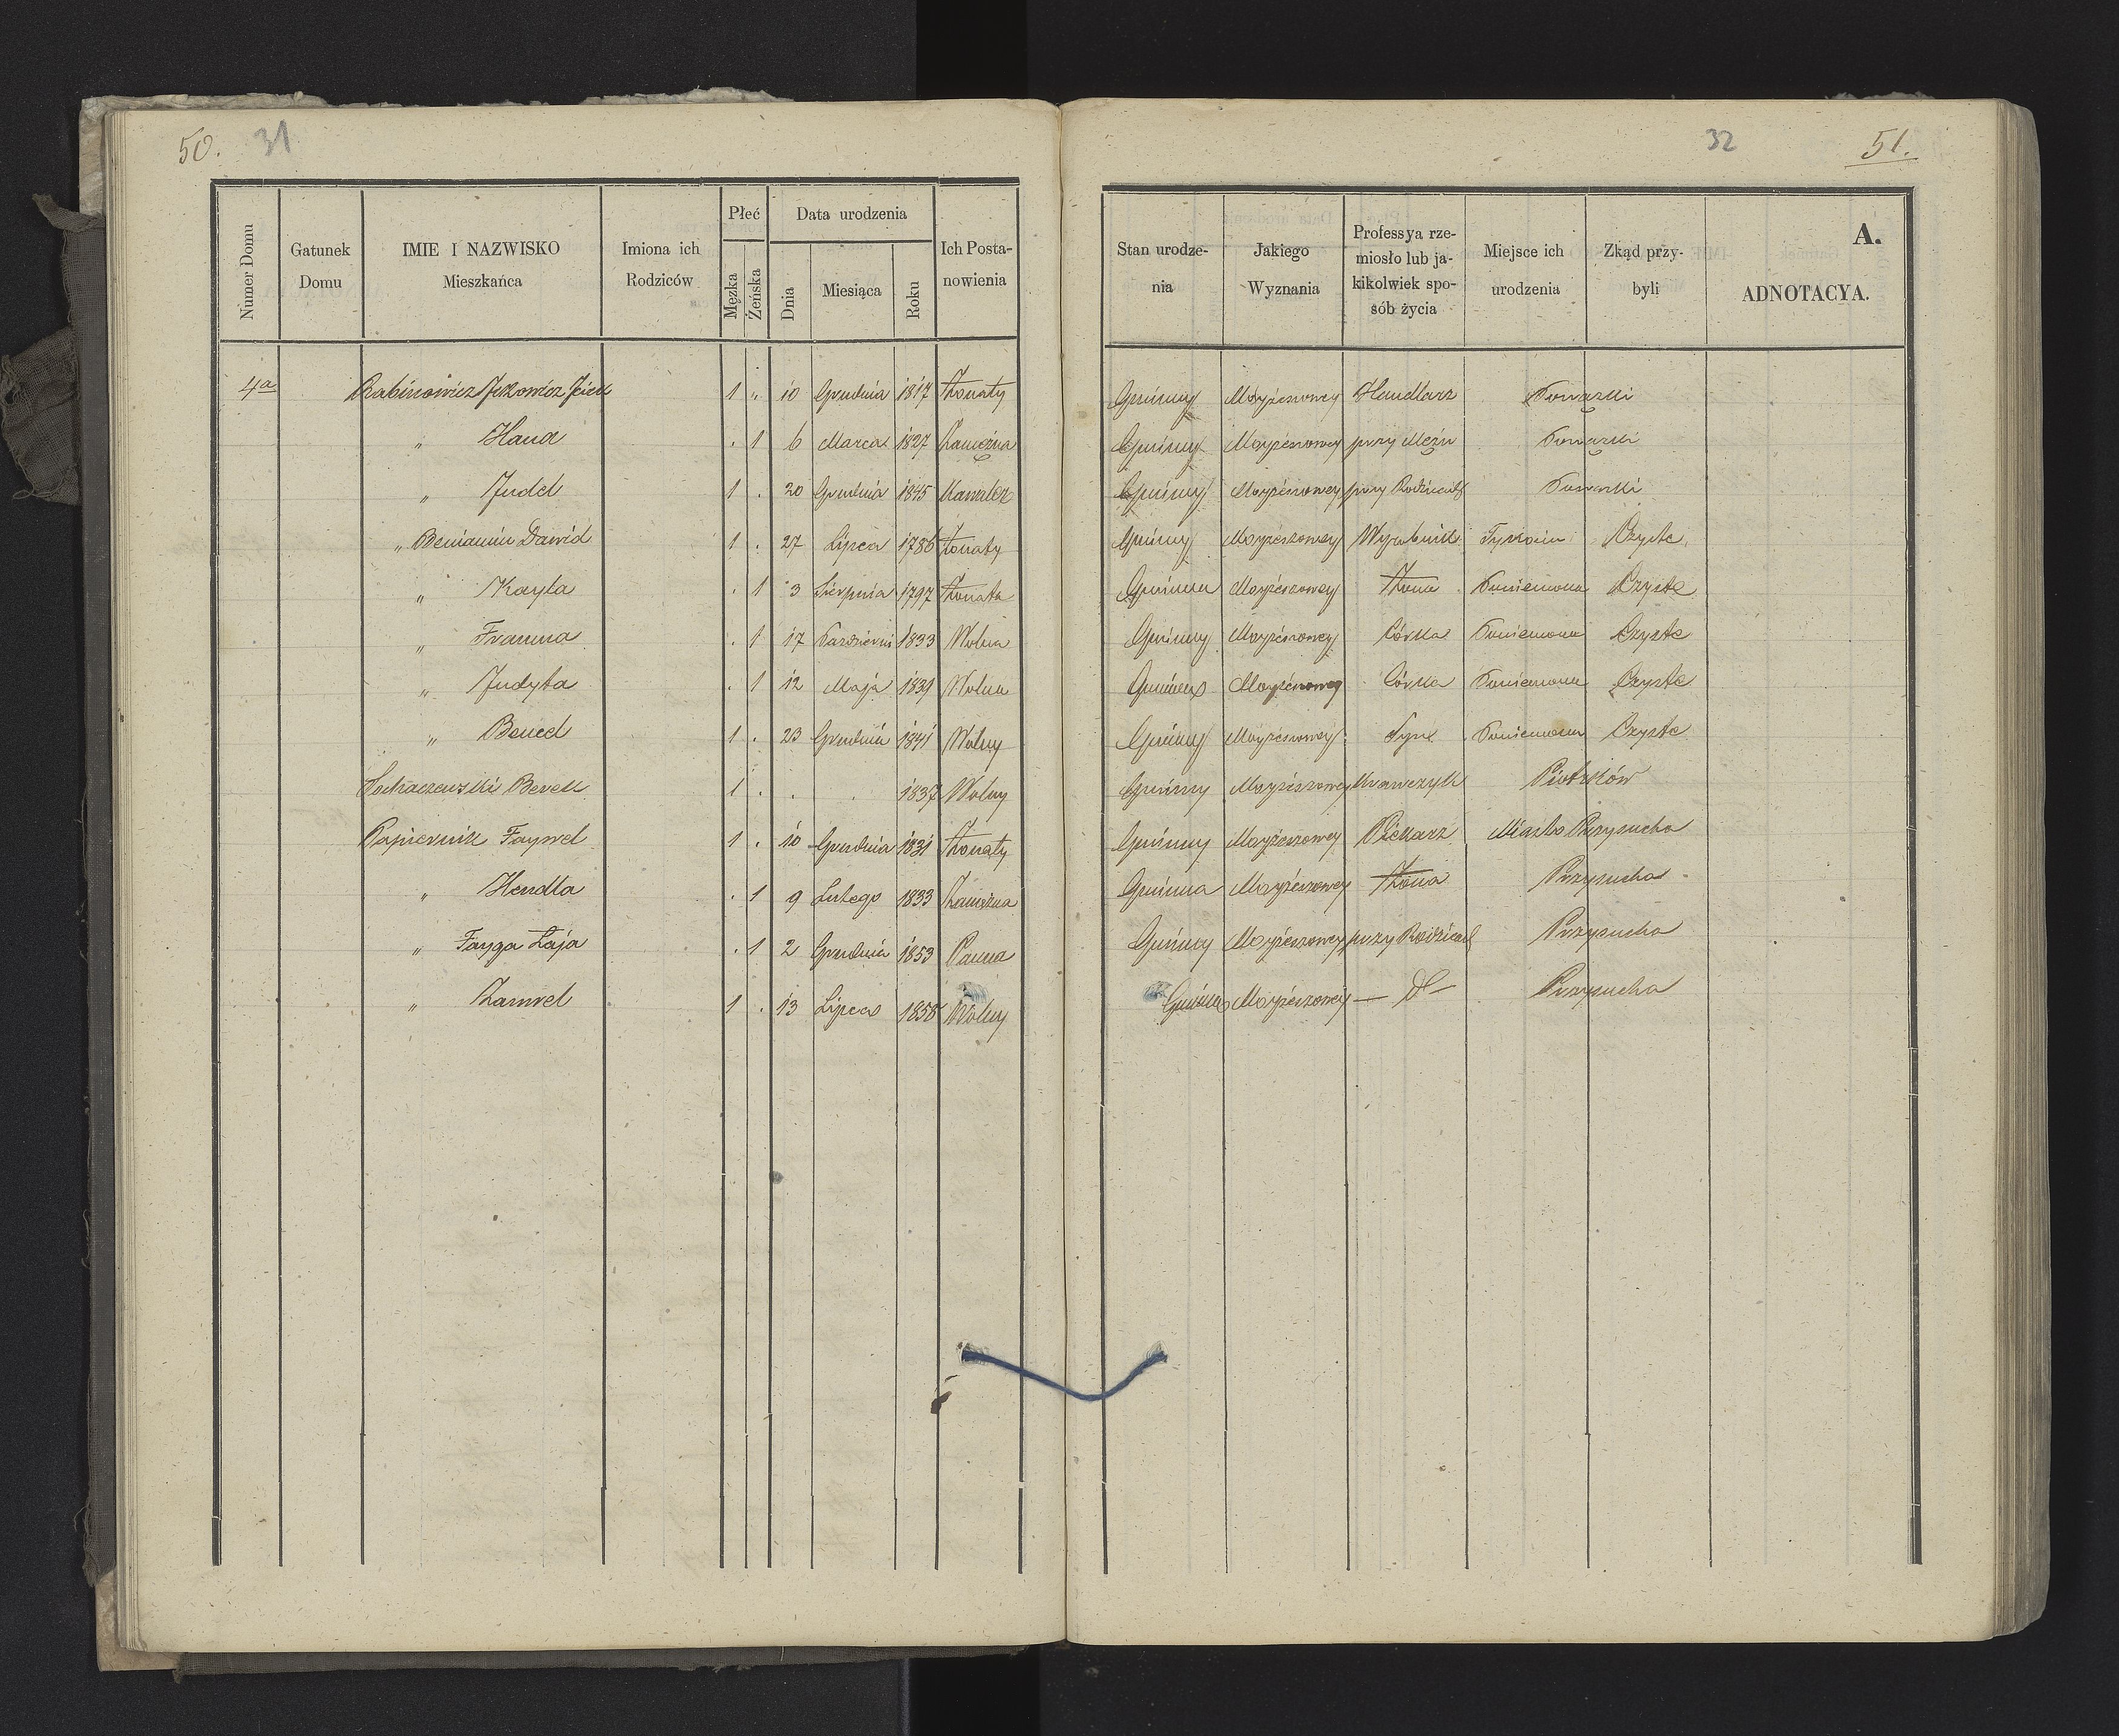 50. 31
Numer Domu
Gatunek Domu
IMIE I NAZWISKO Mieszkańca
Imiona ich Rodziców
Płeć
Męzka
Żeńska
Data urodzenia
Dnia
Miesiąca
Roku
Ich Posta-
nowienia
4a Rabinowicz 1 " 10 Grudnia 1817 Żonaty
" Hana . 1 6 Marca 1827 Zamężna
" Judel 1 . 20 Grudnia 1845 Kawaler
" Beniamin Dawid 1 . 27 Lipca 1786 Żonaty
" Kayla . 1 3 Sierpnia 1797 Żonata
" Franna . 1 17 1833 Wolna
" Judyta . 1 12 Maja 1839 Wolna
" 1 . 23 Grudnia 1841 Wolny
Sochaczewski Berek 1 . . . 1837 Wolny
Papiernik Faywel 1 . 10 Grudnia 1831 Żonaty
" Hendla . 1 9 Lutego 1833 Zamężna
" Fayga Łaja . 1 2 Grudnia 1853 Panna
" Zamvel 1 . 13 Lipca 1858 Wolny
32 51.
Stan urodze-
nia
Jakiego
Wyznania
Professya rze-
miosło lub ja-
kikolwiek spo-
sób życia
Miejsce ich
urodzenia
Zkąd przy-
byli
A.
ADNOTACYA.
Gminny Mojżeszowey Handlarz Powązki
Gminny Mojżeszowey przy Mężu Powązki
Gminny Mojżeszowey przy Rodzicach Powązki
Gminny Mojżeszowey Wyrobnik Czyste
Gminna Mojżeszowey Żona Czyste
Gminny Mojżeszowey Córka Czyste
Mojżeszowey Córka Czyste
Gminny Mojżeszowey Syn Czyste
Gminny Mojżeszowey Krawczyk Piotrków
Gminny Mojżeszowey Piekarz Miasto Przysucha
Gminna Mojżeszowey Żona Przysucha
Gminny Mojżeszowey przy Rodzicach Przysucha
Mojżeszowey — d° — Przysucha